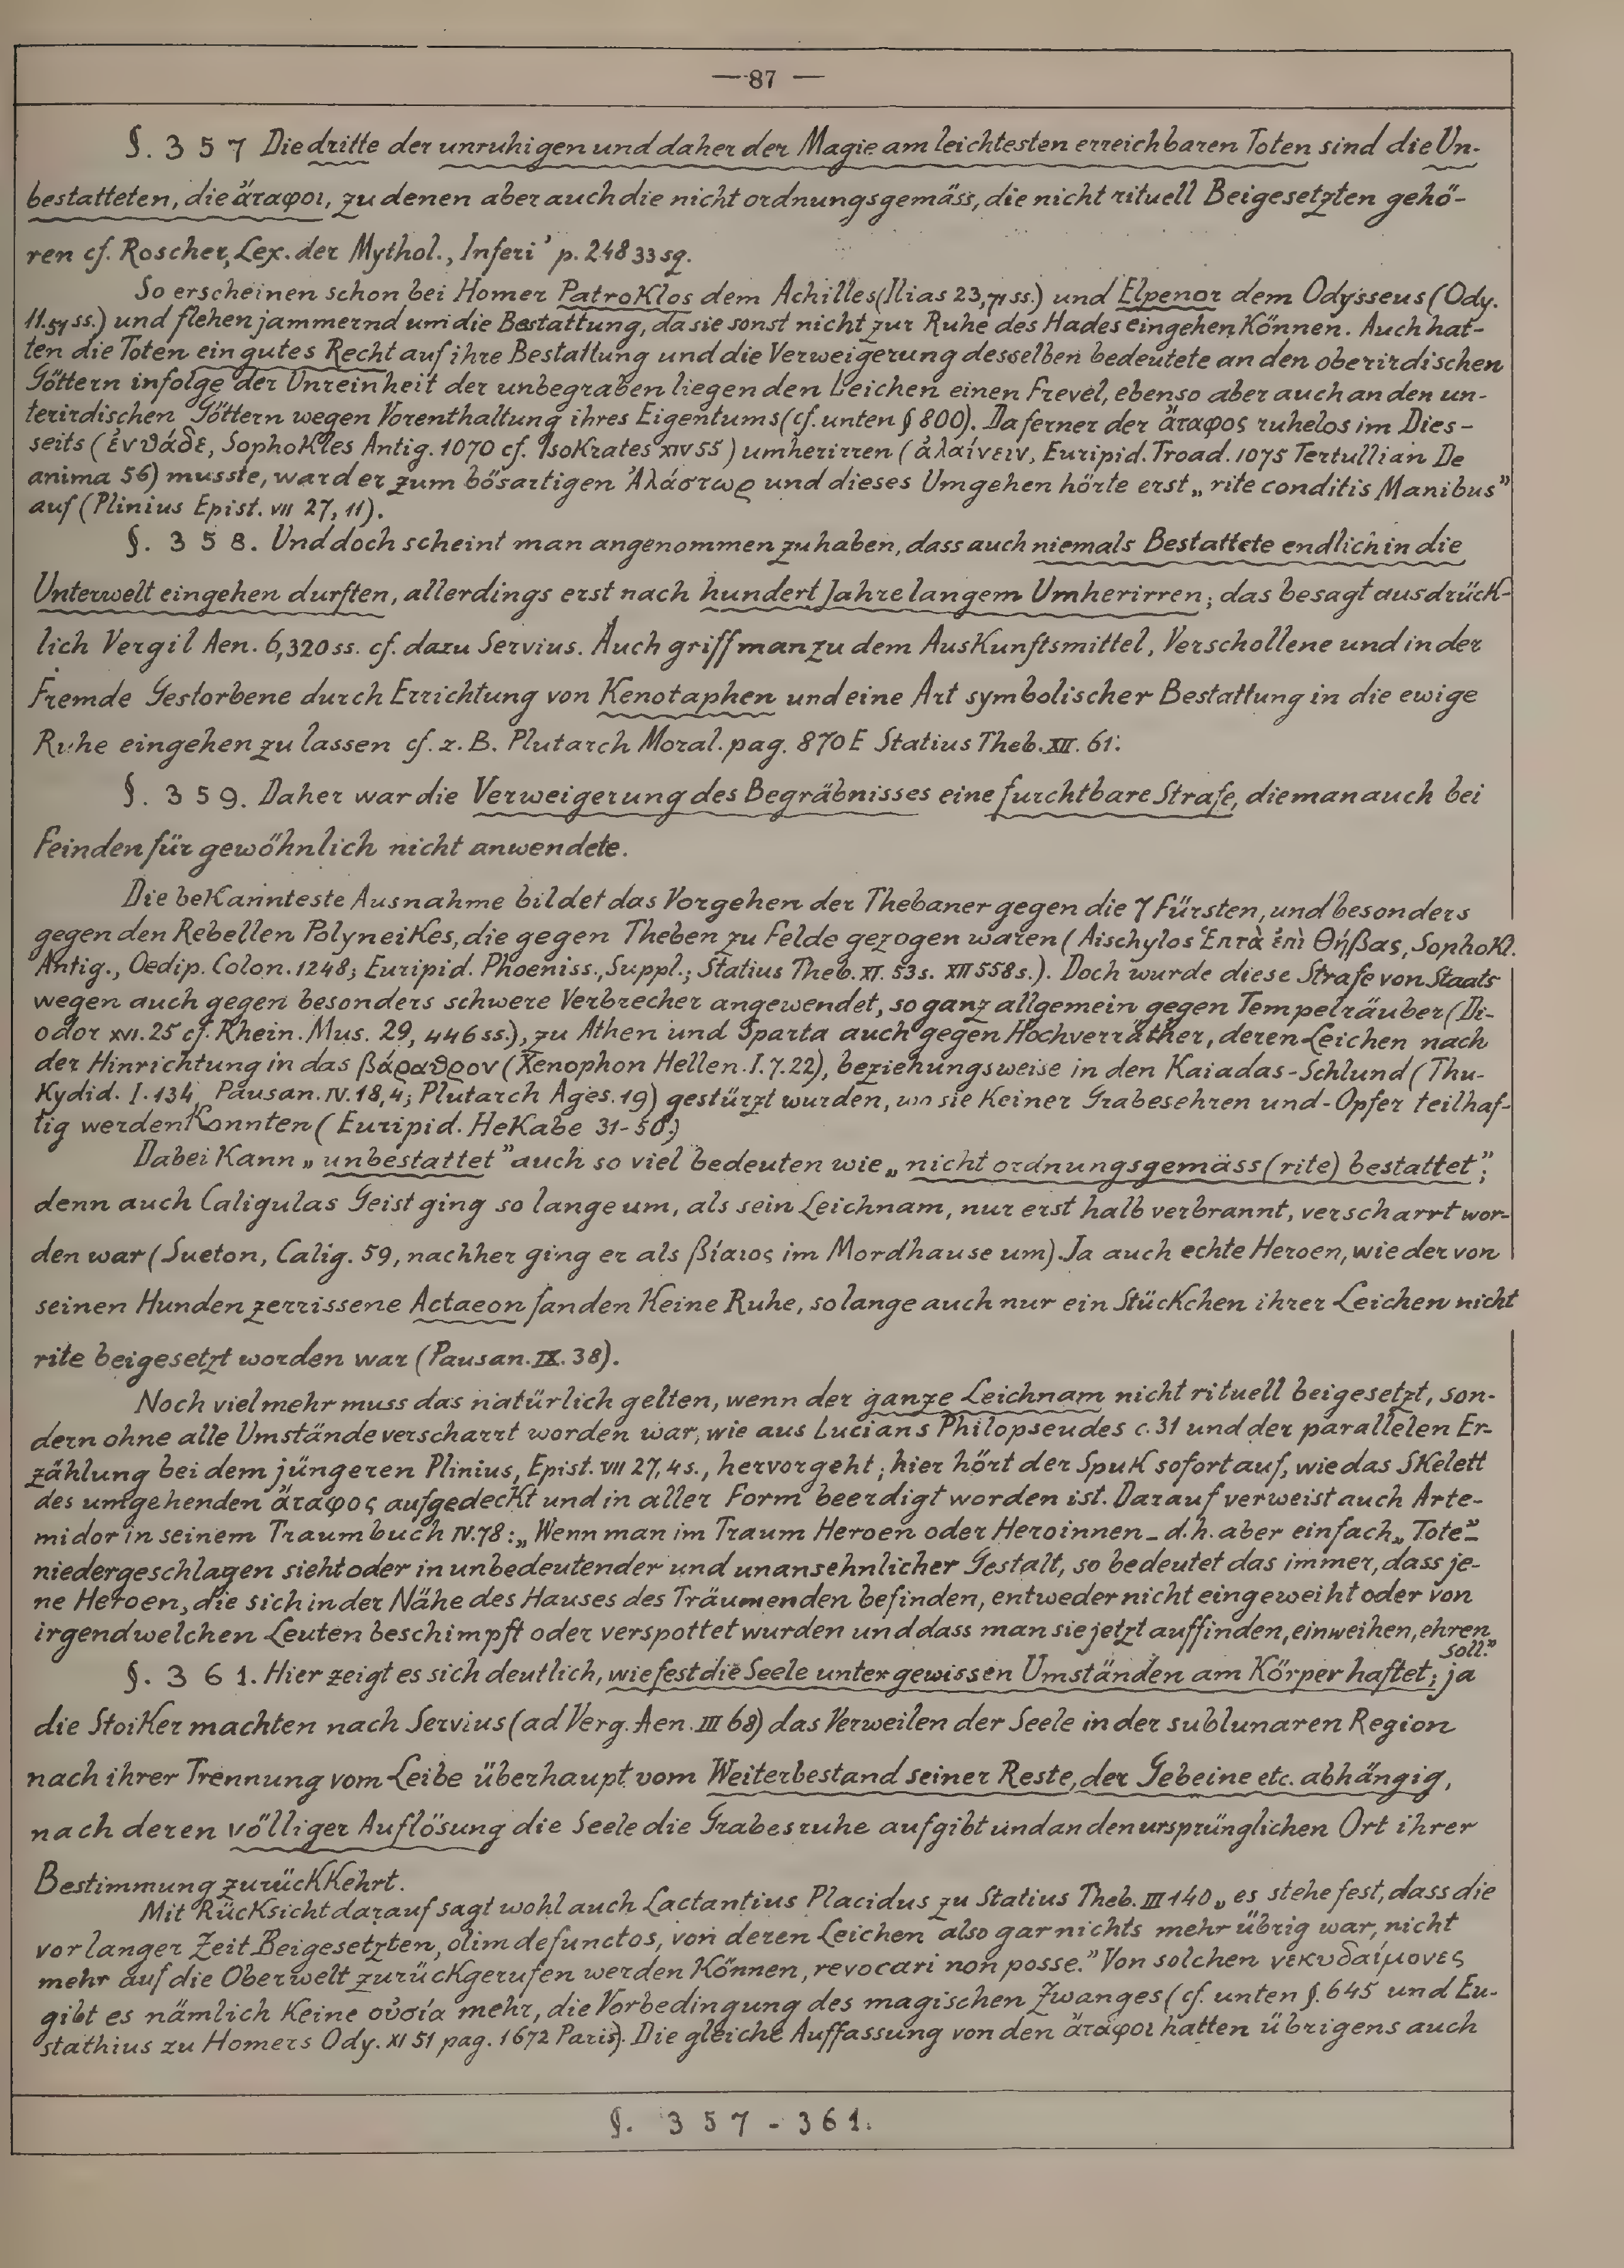 — 87 —
§. 357 Die dritte der unruhigen und daher der Magie am leichtesten erreichbaren Toten sind die Un-
bestatteten, die ἄταφοι, zu denen aber auch die nicht ordnungsgemäss, die nicht rituell Beigesetzten gehö-
ren cf. Roscher, Lex. der Mythol., Inferi' p. 248 33 sq.
So erscheinen schon bei Homer Patroklos dem Achilles (Ilias 23,71 ss.) und Elpenor dem Odysseus (Ody.
11.51 ss.) und flehen jammernd um die Bestattung, da sie sonst nicht zur Ruhe des Hades eingehen können. Auch hat-
ten die Toten ein gutes Recht auf ihre Bestattung und die Verweigerung desselben bedeutete an den oberirdischen
Göttern infolge der Unreinheit der unbegraben liegenden Leichen einen Frevel, ebenso aber auch an den un-
terirdischen Göttern wegen Vorenthaltung ihres Eigentums (cf. unten § 800). Da ferner der ἄταφος ruhelos im Dies-
seits (ἐνθάδε, Sophokles Antig. 1070 cf. Isokrates XIV 55) umherirren (ἀλαίνειν, Euripid. Troad. 1075 Tertullian De
anima 56) musste, ward er zum bösartigen Ἀλάστωρ und dieses Umgehen hörte erst „rite conditis Manibus”
auf (Plinius Epist. VII 27, 11).
§. 358. Und doch scheint man angenommen zu haben, dass auch niemals Bestattete endlich in die
Unterwelt eingehen durften, allerdings erst nach hundert Jahre langem Umherirren; das besagt ausdrück-
lich Vergil Aen. 6,320 ss. cf. dazu Servius. Auch griff man zu dem Auskunftsmittel, Verschollene und in der
Fremde Gestorbene durch Errichtung von Kenotaphen und eine Art symbolischer Bestattung in die ewige
Ruhe eingehen zu lassen cf. z. B. Plutarch Moral. pag. 870 E Statius Theb. XII. 61.
§. 359. Daher war die Verweigerung des Begräbnisses eine furchtbare Strafe, die man auch bei
Feinden für gewöhnlich nicht anwendete.
Die bekannteste Ausnahme bildet das Vorgehen der Thebaner gegen die 7 Fürsten, und besonders
gegen den Rebellen Polyneikes, die gegen Theben zu Felde gezogen waren (Aischylos Ἑπτὰ ἐπὶ Θήβας, Sophokl.
Antig., Oedip. Colon. 1248; Euripid. Phoeniss., Suppl.; Statius Theb. XI. 53 s. XII 558 s.). Doch wurde diese Strafe von Staats
wegen auch gegen besonders schwere Verbrecher angewendet, so ganz allgemein gegen Tempelräuber (Di-
odor XVI. 25 cf. Rhein. Mus. 29, 446 ss.), zu Athen und Sparta auch gegen Hochverräther, deren Leichen nach
der Hinrichtung in das βάραθρον (Xenophon Hellen. I. 7. 22), beziehungsweise in den Kaiadas-Schlund (Thu-
kydid. I. 134, Pausan. IV. 18, 4; Plutarch Ages. 19) gestürzt wurden, wo sie keiner Grabesehren und -Opfer teilhaf-
tig werden konnten (Euripid. Hekabe 31-50.)
Dabei kann „unbestattet” auch so viel bedeuten wie „nicht ordnungsgemäss (rite) bestattet”;
denn auch Caligulas Geist ging so lange um, als sein Leichnam, nur erst halb verbrannt, verscharrt wor-
den war (Sueton, Calig. 59, nachher ging er als βίαιος im Mordhause um). Ja auch echte Heroen, wie der von
seinen Hunden zerrissene Actaeon fanden keine Ruhe, solange auch nur ein Stückchen ihrer Leichen nicht
rite beigesetzt worden war (Pausan. IX. 38).
Noch viel mehr muss das natürlich gelten, wenn der ganze Leichnam nicht rituell beigesetzt, son-
dern ohne alle Umstände verscharrt worden war, wie aus Lucians Philopseudes c. 31 und der parallelen Er-
zählung bei dem jüngeren Plinius, Epist. VII 27, 4 s., hervorgeht; hier hört der Spuk sofort auf, wie das Skelett
des umgehenden ἄταφος aufgedeckt und in aller Form beerdigt worden ist. Darauf verweist auch Arte-
midor in seinem Traumbuch IV. 78: „Wenn man im Traum Heroen oder Heroinnen - d. h. aber einfach „Tote” -
niedergeschlagen sieht oder in unbedeutender und unansehnlicher Gestalt, so bedeutet das immer, dass je-
ne Heroen, die sich in der Nähe des Hauses des Träumenden befinden, entweder nicht eingeweiht oder von
irgendwelchen Leuten beschimpft oder verspottet wurden und dass man sie jetzt auffinden, einweihen, ehren
soll.”
§. 361. Hier zeigt es sich deutlich, wie fest die Seele unter gewissen Umständen am Körper haftet; ja
die Stoiker machten nach Servius (ad Verg. Aen. III 68) das Verweilen der Seele in der sublunaren Region
nach ihrer Trennung vom Leibe überhaupt vom Weiterbestand seiner Reste, der Gebeine etc. abhängig,
nach deren völliger Auflösung die Seele die Grabesruhe aufgibt und an den ursprünglichen Ort ihrer
Bestimmung zurückkehrt.
Mit Rücksicht darauf sagt wohl auch Lactantius Placidus zu Statius Theb. III 140 „es stehe fest, dass die
vor langer Zeit Beigesetzten, olim defunctos, von deren Leichen also gar nichts mehr übrig war, nicht
mehr auf die Oberwelt zurückgerufen werden können, revocari non posse.” Von solchen νεκυδαίμονες
gibt es nämlich keine οὐσία mehr, die Vorbedingung des magischen Zwanges (cf. unten §. 645 und Eu-
stathius zu Homers Ody. XI 51 pag. 1672 Paris). Die gleiche Auffassung von den ἄταφοι hatten übrigens auch
§. 357-361.